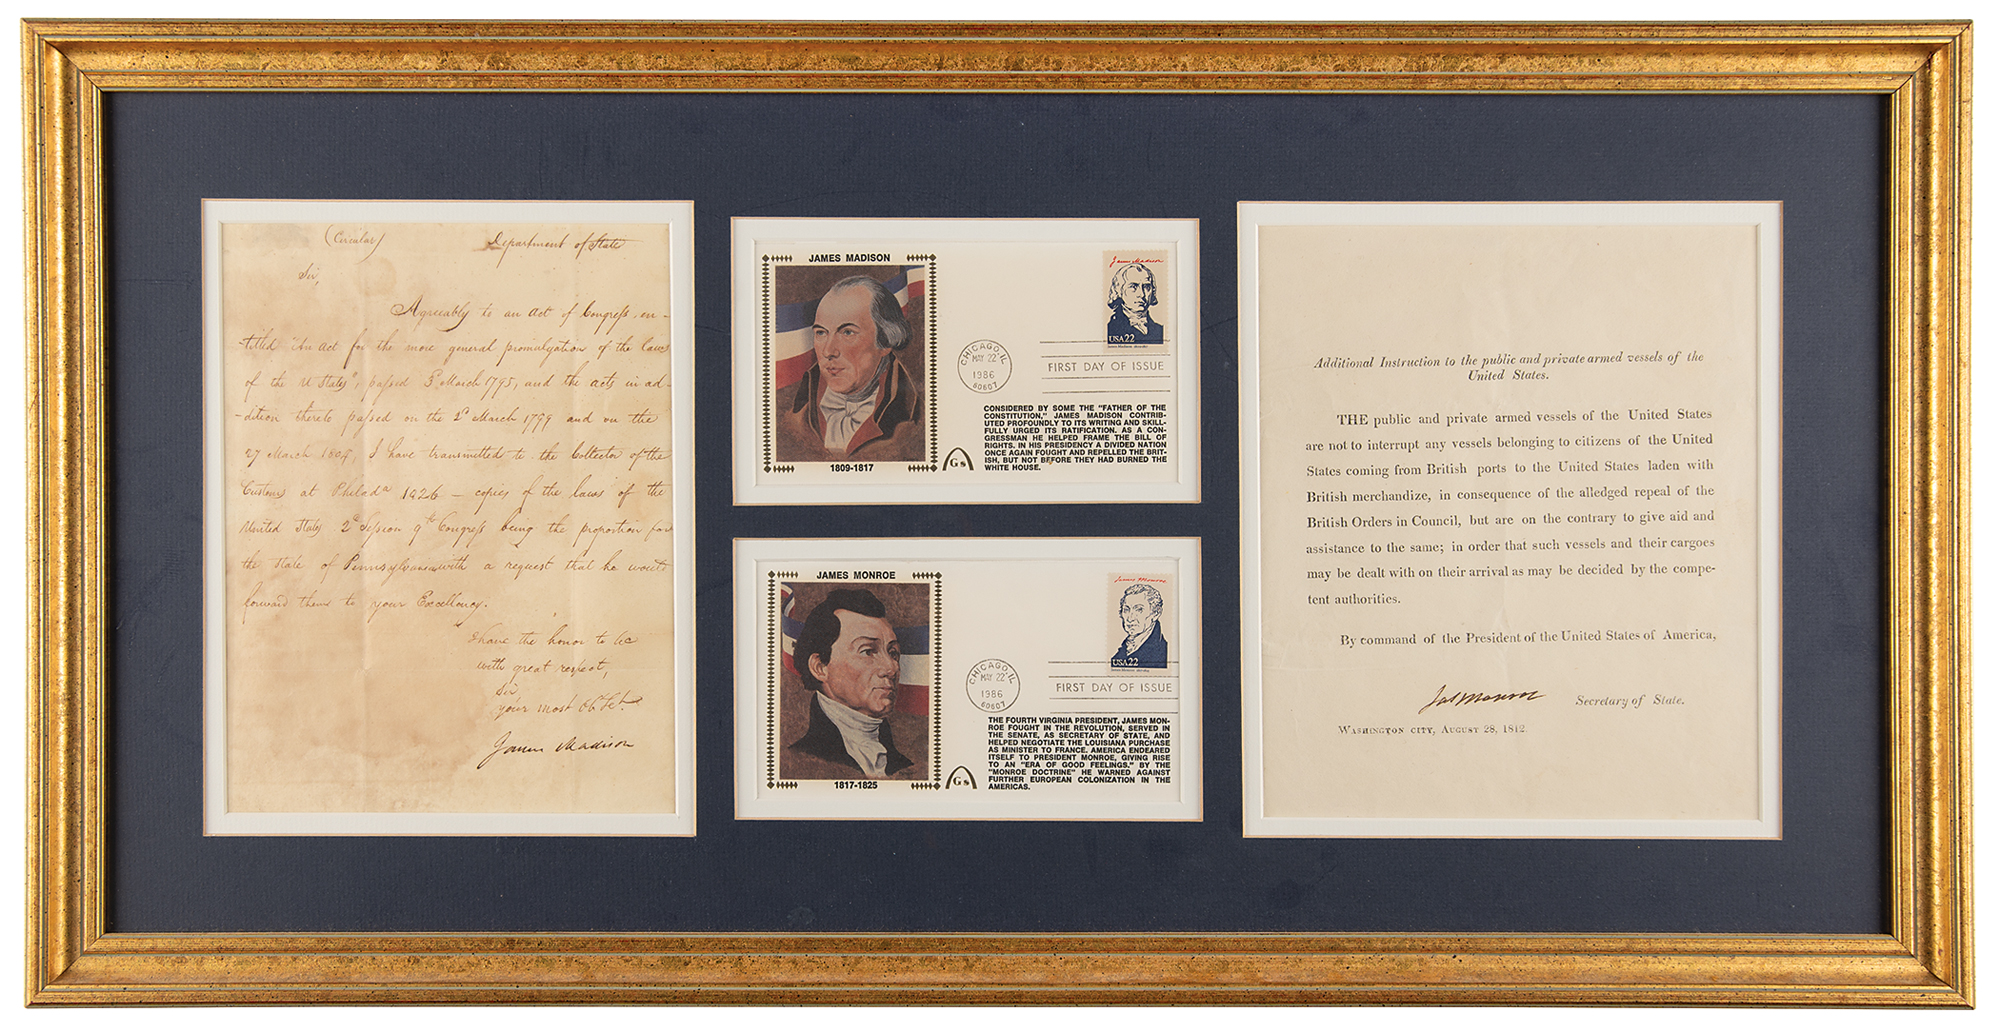 (Circular)
Department of State
Sir,
Agreeably to an act of Congress, en-
-titled "An act for the more general promulgation of the laws
of the U States", passed 3d March 1795, and the acts in ad-
-dition thereto passed on the 2d March 1799 and on the
27 March 1804, I have transmitted to the Collector of the
Customs at Philada 1226 – copies of the laws of the
United States 2d Session 9th Congress being the proportion for
the State of Pennsylvania with a request that he would
forward them to your Excellency.
I have the honor to be
with great respect,
Sir,
your most Obt Set.
James Madison
JAMES MADISON
1809-1817
Gs
James Madison
USA22
CHICAGO, IL
MAY 22
1986
60607
FIRST DAY OF ISSUE
CONSIDERED BY SOME THE "FATHER OF THE
CONSTITUTION," JAMES MADISON CONTRIB-
UTED PROFOUNDLY TO ITS WRITING AND SKILL-
FULLY URGED ITS RATIFICATION. AS A CON-
GRESSMAN HE HELPED FRAME THE BILL OF
RIGHTS. IN HIS PRESIDENCY A DIVIDED NATION
ONCE AGAIN FOUGHT AND REPELLED THE BRIT-
ISH, BUT NOT BEFORE THEY HAD BURNED THE
WHITE HOUSE.
JAMES MONROE
1817-1825
Gs
James Monroe
USA22
CHICAGO, IL
MAY 22
1986
60607
FIRST DAY OF ISSUE
THE FOURTH VIRGINIA PRESIDENT, JAMES MON-
ROE FOUGHT IN THE REVOLUTION, SERVED IN
THE SENATE, AS SECRETARY OF STATE, AND
HELPED NEGOTIATE THE LOUISIANA PURCHASE
AS MINISTER TO FRANCE. AMERICA ENDEARED
ITSELF TO PRESIDENT MONROE, GIVING RISE
TO AN "ERA OF GOOD FEELINGS." BY THE
"MONROE DOCTRINE" HE WARNED AGAINST
FURTHER EUROPEAN COLONIZATION IN THE
AMERICAS.
Additional Instruction to the public and private armed vessels of the
United States.
THE public and private armed vessels of the United States
are not to interrupt any vessels belonging to citizens of the United
States coming from British ports to the United States laden with
British merchandize, in consequence of the alledged repeal of the
British Orders in Council, but are on the contrary to give aid and
assistance to the same; in order that such vessels and their cargoes
may be dealt with on their arrival as may be decided by the compe-
tent authorities.
By command of the President of the United States of America,
Jas Monroe Secretary of State.
WASHINGTON CITY, AUGUST 28, 1812.